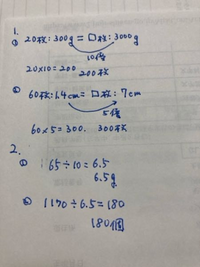 1.
① 20枚:300g = □枚:3000g
10倍
20×10=200
200枚
② 60枚:1.4cm = □枚:7cm
5倍
60×5=300. 300枚
2.
① 65÷10=6.5
6.5g
② 1170÷6.5=180
180個